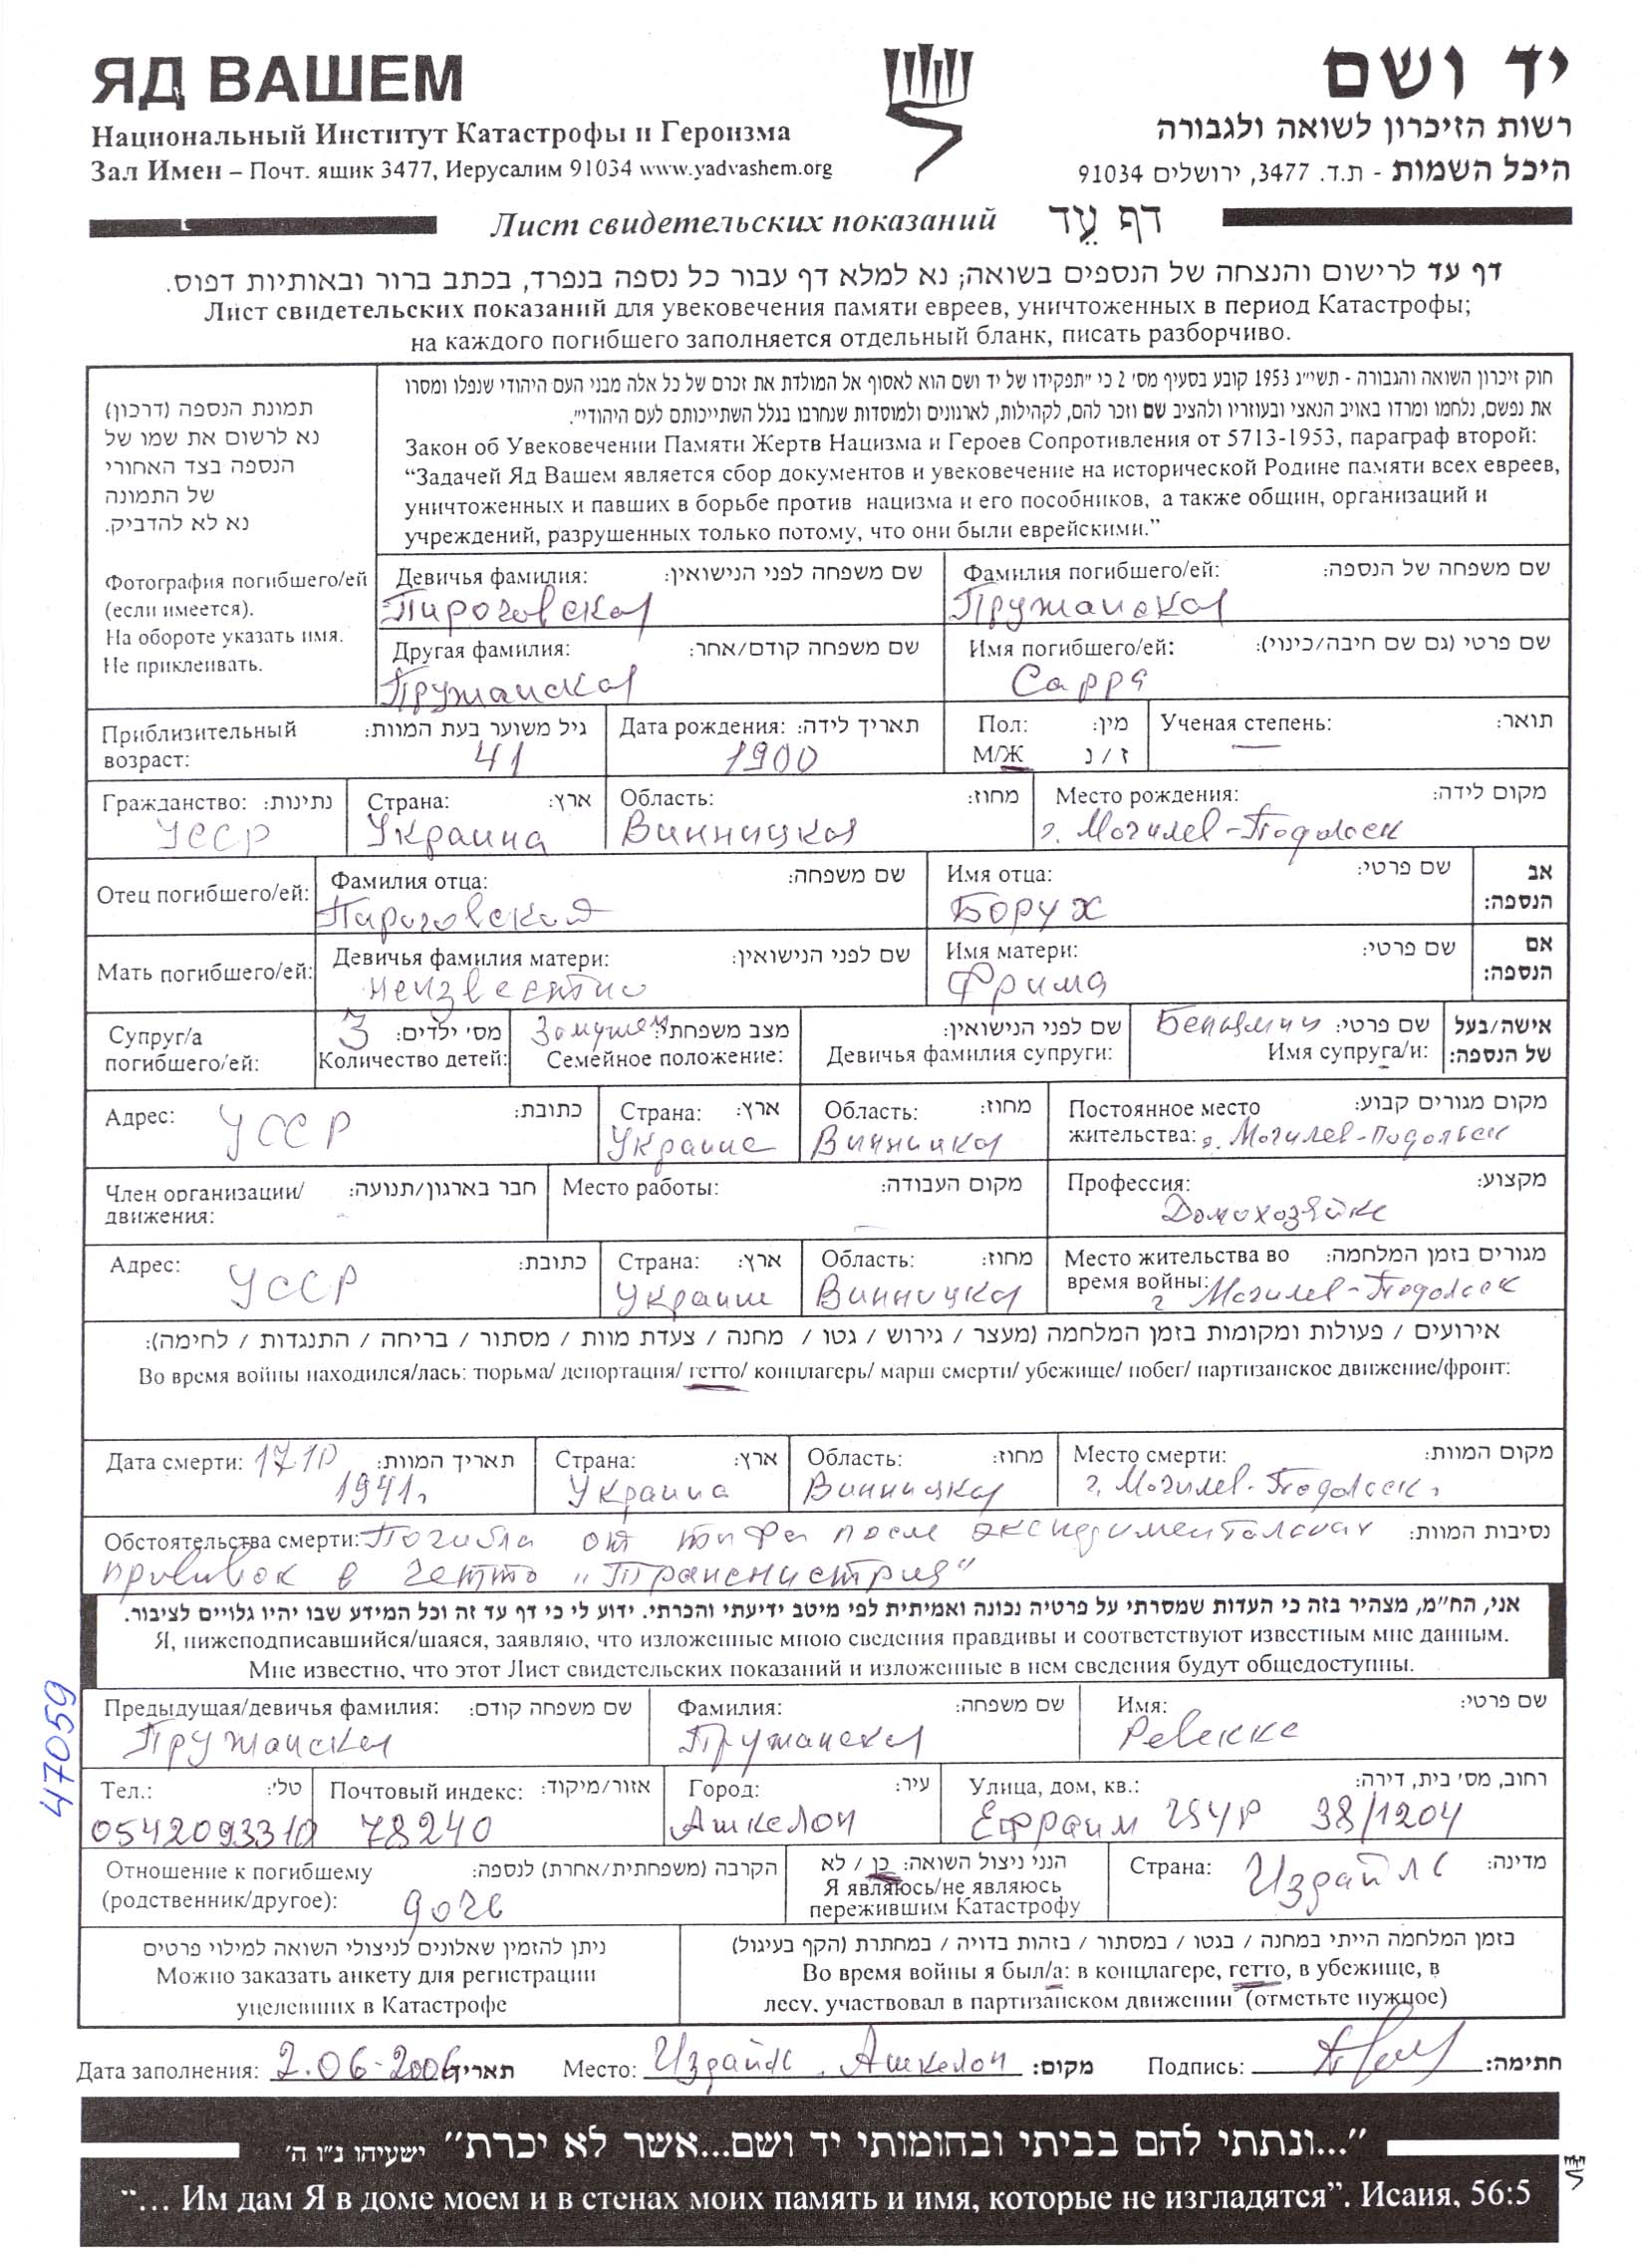 ЯД ВАШЕМ
יד ושם
Национальный Институт Катастрофы и Героизма
רשות הזיכרון לשואה ולגבורה
Зал Имен – Почт. ящик 3477, Иерусалим 91034 www.yadvashem.org
היכל השמות - ת.ד. 3477, ירושלים 91034
Лист свидетельских показаний דף עֵד
דף עד לרישום והנצחה של הנספים בשואה; נא למלא דף עבור כל נספה בנפרד, בכתב ברור ובאותיות דפוס.
Лист свидетельских показаний для увековечения памяти евреев, уничтоженных в период Катастрофы;
на каждого погибшего заполняется отдельный бланк, писать разборчиво.
תמונת הנספה (דרכון)
נא לרשום את שמו של
הנספה בצד האחורי
של התמונה
נא לא להדביק.
Фотография погибшего/ей
(если имеется).
На обороте указать имя.
Не приклеивать.
חוק זיכרון השואה והגבורה - תשי״ג 1953 קובע בסעיף מס׳ 2 כי ״תפקידו של יד ושם הוא לאסוף אל המולדת את זכרם של כל אלה מבני העם היהודי שנפלו ומסרו
את נפשם, נלחמו ומרדו באויב הנאצי ובעוזריו ולהציב שם וזכר להם, לקהילות, לארגונים ולמוסדות שנחרבו בגלל השתייכותם לעם היהודי״.
Закон об Увековечении Памяти Жертв Нацизма и Героев Сопротивления от 5713-1953, параграф второй:
“Задачей Яд Вашем является сбор документов и увековечение на исторической Родине памяти всех евреев,
уничтоженных и павших в борьбе против нацизма и его пособников, а также общин, организаций и
учреждений, разрушенных только потому, что они были еврейскими.”
Девичья фамилия: שם משפחה לפני הנישואין:
Пироговская
Фамилия погибшего/ей: שם משפחה של הנספה:
Пружанская
Другая фамилия: שם משפחה קודם/אחר:
Пружанская
Имя погибшего/ей: שם פרטי (גם שם חיבה/כינוי):
Сарра
Приблизительный גיל משוער בעת המוות:
возраст: 41
Дата рождения: תאריך לידה:
1900
Пол: מין:
М/Ж ז / נ
Ученая степень: תואר:
—
Гражданство: נתינות:
УССР
Страна: ארץ:
Украина
Область: מחוז:
Винницкая
Место рождения: מקום לידה:
г. Могилев-Подольск
Отец погибшего/ей:
Фамилия отца: שם משפחה:
Пироговский
Имя отца: שם פרטי:
Борух
אב
הנספה:
Мать погибшего/ей:
Девичья фамилия матери: שם לפני הנישואין:
неизвестно
Имя матери: שם פרטי:
Фрима
אם
הנספה:
Супруг/а
погибшего/ей:
3 מס׳ ילדים:
Количество детей:
Замужем מצב משפחתי:
Семейное положение:
שם לפני הנישואין:
Девичья фамилия супруги:
Беньямин שם פרטי:
Имя супруга/и:
אישה/בעל
של הנספה:
Адрес: УССР כתובת:
Страна: ארץ:
Украине
Область: מחוז:
Винницкая
Постоянное место מקום מגורים קבוע:
жительства: г. Могилев-Подольск
Член организации/ חבר בארגון/תנועה:
движения:
Место работы: מקום העבודה:
Профессия: מקצוע:
Домохозяйке
Адрес: УССР כתובת:
Страна: ארץ:
Украине
Область: מחוז:
Винницкая
Место жительства во מגורים בזמן המלחמה:
время войны: г Могилев-Подольск
אירועים / פעולות ומקומות בזמן המלחמה (מעצר / גירוש / גטו / מחנה / צעדת מוות / מסתור / בריחה / התנגדות / לחימה):
Во время войны находился/лась: тюрьма/ депортация/ гетто/ концлагерь/ марш смерти/ убежище/ побег/ партизанское движение/фронт:
Дата смерти: 17 10 תאריך המוות:
1941г
Страна: ארץ:
Украина
Область: מחוז:
Винницкая
Место смерти: מקום המוות:
г. Могилев-Подольск.
Обстоятельства смерти: Погибла от тифа после экспериментальных נסיבות המוות:
прививок в гетто „Транснистрия"
אני, הח״מ, מצהיר בזה כי העדות שמסרתי על פרטיה נכונה ואמיתית לפי מיטב ידיעתי והכרתי. ידוע לי כי דף עד זה וכל המידע שבו יהיו גלויים לציבור.
Я, нижеподписавшийся/шаяся, заявляю, что изложенные мною сведения правдивы и соответствуют известным мне данным.
Мне известно, что этот Лист свидетельских показаний и изложенные в нем сведения будут общедоступны.
Предыдущая/девичья фамилия: שם משפחה קודם:
Пружанская
Фамилия: שם משפחה:
Пружанская
Имя: שם פרטי:
Ревекке
47059
Тел.: טל׳:
0542093310
Почтовый индекс: אזור/מיקוד:
78240
Город: עיר:
Ашкелон
Улица, дом, кв.: רחוב, מס׳ בית, דירה:
Ефраим 38/1204
Отношение к погибшему הקרבה (משפחתית/אחרת) לנספה:
(родственник/другое): дочь
הנני ניצול השואה: כן / לא
Я являюсь/не являюсь
пережившим Катастрофу
Страна: Израиль מדינה:
ניתן להזמין שאלונים לניצולי השואה למילוי פרטים
Можно заказать анкету для регистрации
уцелевших в Катастрофе
בזמן המלחמה הייתי במחנה / בגטו / במסתור / בזהות בדויה / במחתרת (הקף בעיגול)
Во время войны я был/а: в концлагере, гетто, в убежище, в
лесу, участвовал в партизанском движении (отметьте нужное)
Дата заполнения: 2.06-2006 תאריך
Место: Израиль, Ашкелон מקום:
Подпись: חתימה:
״...ונתתי להם בביתי ובחומותי יד ושם...אשר לא יכרת״ ישעיהו נ״ו ה׳
“... Им дам Я в доме моем и в стенах моих память и имя, которые не изгладятся”. Исаия, 56:5